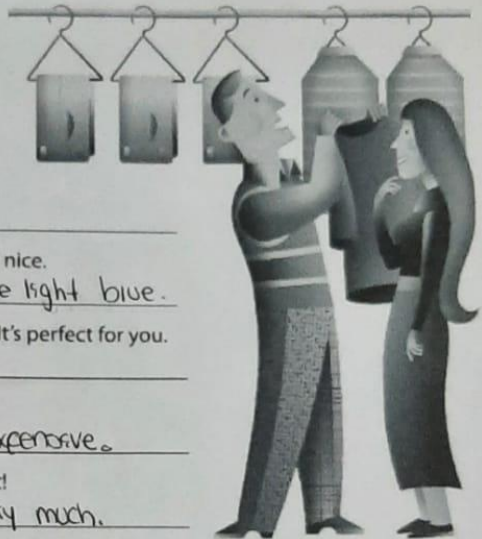 nice.
e light blue.
It's perfect for you.
xpensive.
!
y much.